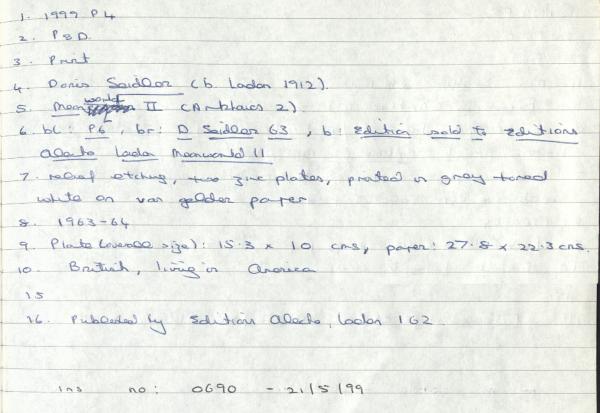 1. 1999 P4
2. P&D.
3. Print
4. Doris Seidler (b. London 1912).
5. Moonworld II (Arkhaios 2)
6. bl: P6, br: D Seidler 63, b: Edition sold to Editions
Alecto London Moonworld II
7. relief etching, two zinc plates, printed in grey toned
white on van gelder paper
8. 1963-64
9. Plate (overall size): 15.3 x 10 cms, paper: 27.8 x 22.3 cms.
10. British, living in America
15
16. Published by Editions Alecto, London 162
ins no: 0690 - 21/5/99